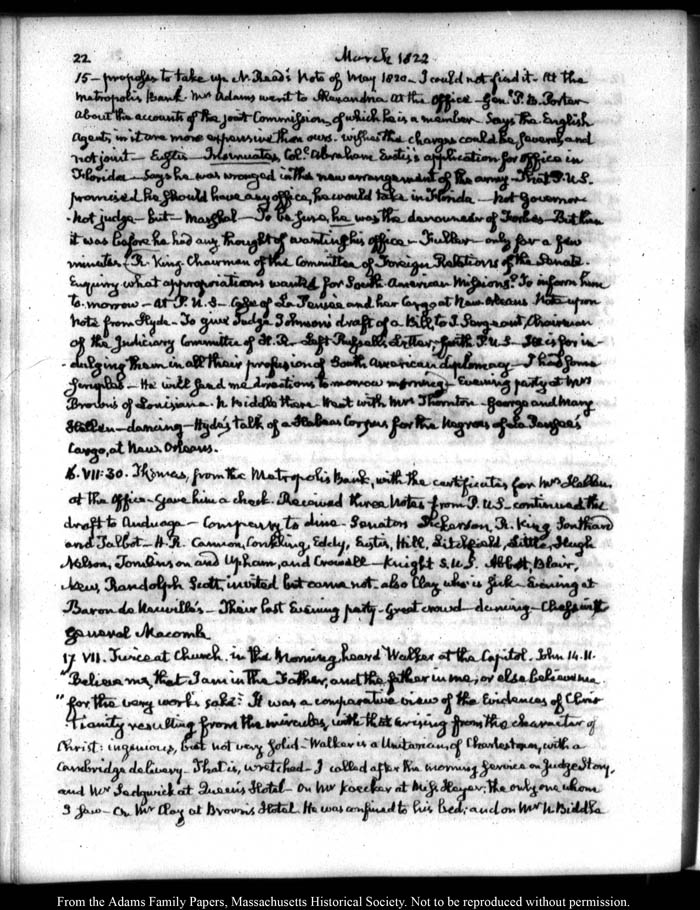 22 March 1822
15 – proposes to take up N. Read's Note of May 1820 – I could not find it – At the
Metropolis Bank. Mrs Adams went to Alexandria At the Office – Genl P. B. Porter
about the accounts of the joint Commission, of which he is a member – Says the English
Agents in it are more expensive than ours. wishes the charges could be several and
not joint – Eustis – Insinuates, Col. Abraham Eustis's application for Office in
Florida – Says he was wronged in the new arrangement of the army – That P. U.S.
promised he should have any office, he would take in Florida – Not Governor
Not judge – But – Marshal – To be sure, he was the denouncer of Forbes – But then
it was before he had any thought of wanting his office – Fuller – only for a few
minutes – R. King Chairman of the Committee of Foreign Relations of the Senate.
Enquiry what appropriations wanted for South American Missions? To inform him
to-morrow – At P. U.S – Case of La Pensée and her Cargo at New Orleans Note upon
Note from Hyde – To give Judge Johnson's draft of a Bill to J Sergeant, Chairman
of the Judiciary Committee of H. R – Left Russell's Letter, with P. U.S – He is for in-
dulging them in all their profusion of South American diplomacy – I had some
scruples – He will send me directions to-morrow morning – Evening party at Mrs
Brown's of Louisiana. N. Biddle there Went with Mrs Thornton – George and Mary
Hellen – dancing – Hyde's talk of a Habeas Corpus for the Negroes of La Pensée's
Cargo, at New Orleans.
16. VII:30. Thomas, from the Metropolis Bank, with the certificates for Mrs Hellen
at the Office – Gave him a check. Received three Notes from P. U.S – continued the
draft to Anduaga – Company to dine – Senators Dickerson, R. King Southard
and Talbot – H. R. Cannon, Conkling, Eddy, Eustis, Hill, Litchfield, Little, Hugh
Nelson, Tomlinson and Upham, and Crowell – Knight S. U.S. Abbot, Blair,
New, Randolph Scott, invited but came not. also Clay who is sick – Evening at
Baron de Neuville's – Their last Evening party – Great crowd – dancing – Chess with
General Macomb
17 VII. Twice at Church. in the Morning heard Walker at the Capitol. John 14. 11.
"Believe me, that I am in the Father, and the father in me; or else believe me
"for the very works sake." It was a comparative view of the Evidences of Chris
tianity resulting from the miracles, with that arising from the character of
Christ: ingenious, but not very solid – Walker is a Unitarian, of Charlestown, with a
Cambridge delivery – That is, wretched – I called after the morning service on Judge Story,
and Mr Sedgwick at Queen's Hotel – On Mr Koecker at Mrs Heyer; the only one whom
I saw – On Mr Clay at Brown's Hotel. He was confined to his bed; and on Mr N. Biddle
From the Adams Family Papers, Massachusetts Historical Society. Not to be reproduced without permission.